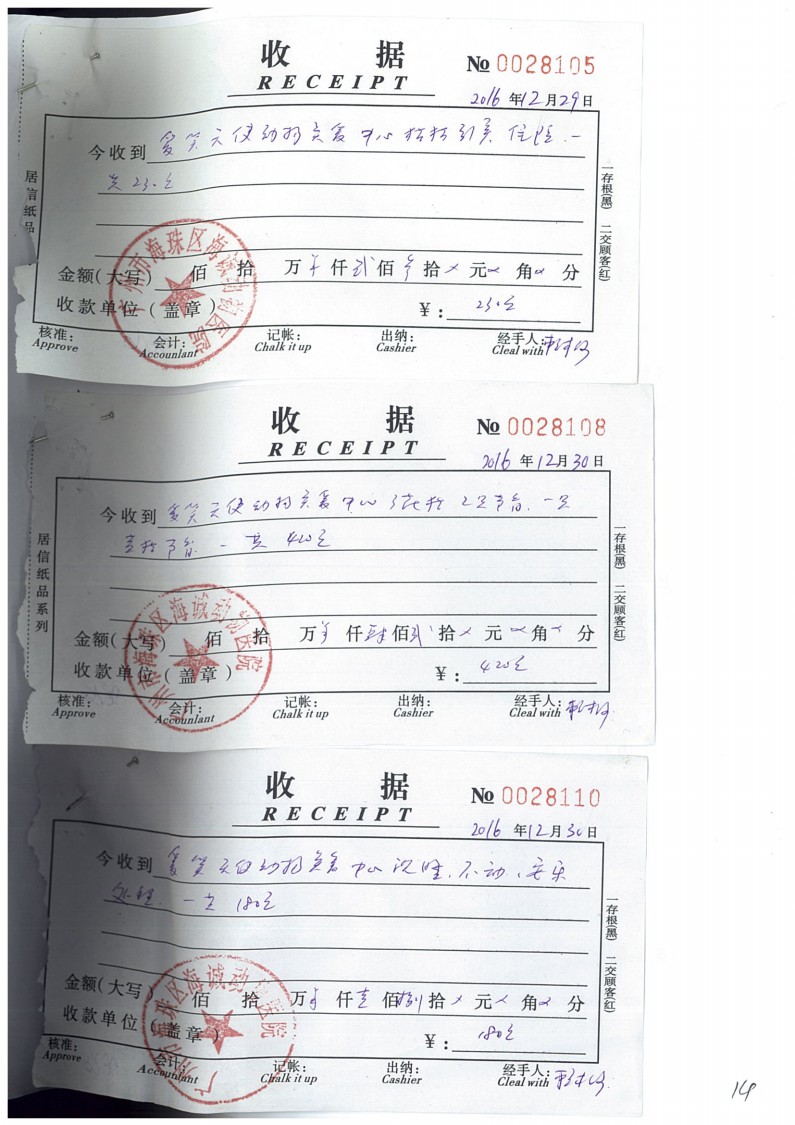 收 据
RECEIPT
№ 0028105
2016 年 12 月 29 日
今收到 爱笑天使动物 中心 住院 一
共 230元
居信纸品
一存根(黑) 二交顾客(红)
金额(大写) 佰 拾 万 仟 贰 佰 叁 拾 元 角 分
收款单位(盖章) ¥: 230元
广州市海珠区海诚动物医院
核准: 会计: 记帐: 出纳: 经手人:
Approve Accountant Chalk it up Cashier Cleal with
收 据
RECEIPT
№ 0028108
2016 年 12 月 30 日
今收到 爱笑天使动物 中心 一只
一共 420元
居信纸品系列
一存根(黑) 二交顾客(红)
金额(大写) 佰 拾 万 仟 肆 佰 贰 拾 元 角 分
收款单位(盖章) ¥: 420元
广州市海珠区海诚动物医院
核准: 会计: 记帐: 出纳: 经手人:
Approve Accountant Chalk it up Cashier Cleal with
收 据
RECEIPT
№ 0028110
2016 年 12 月 30 日
今收到 爱笑天使动物 中心 不动、安乐
处理 一共 180元
一存根(黑) 二交顾客(红)
金额(大写) 佰 拾 万 仟 壹 佰 捌 拾 元 角 分
收款单位(盖章) ¥: 180元
广州市海珠区海诚动物医院
核准: 会计: 记帐: 出纳: 经手人:
Approve Accountant Chalk it up Cashier Cleal with
14